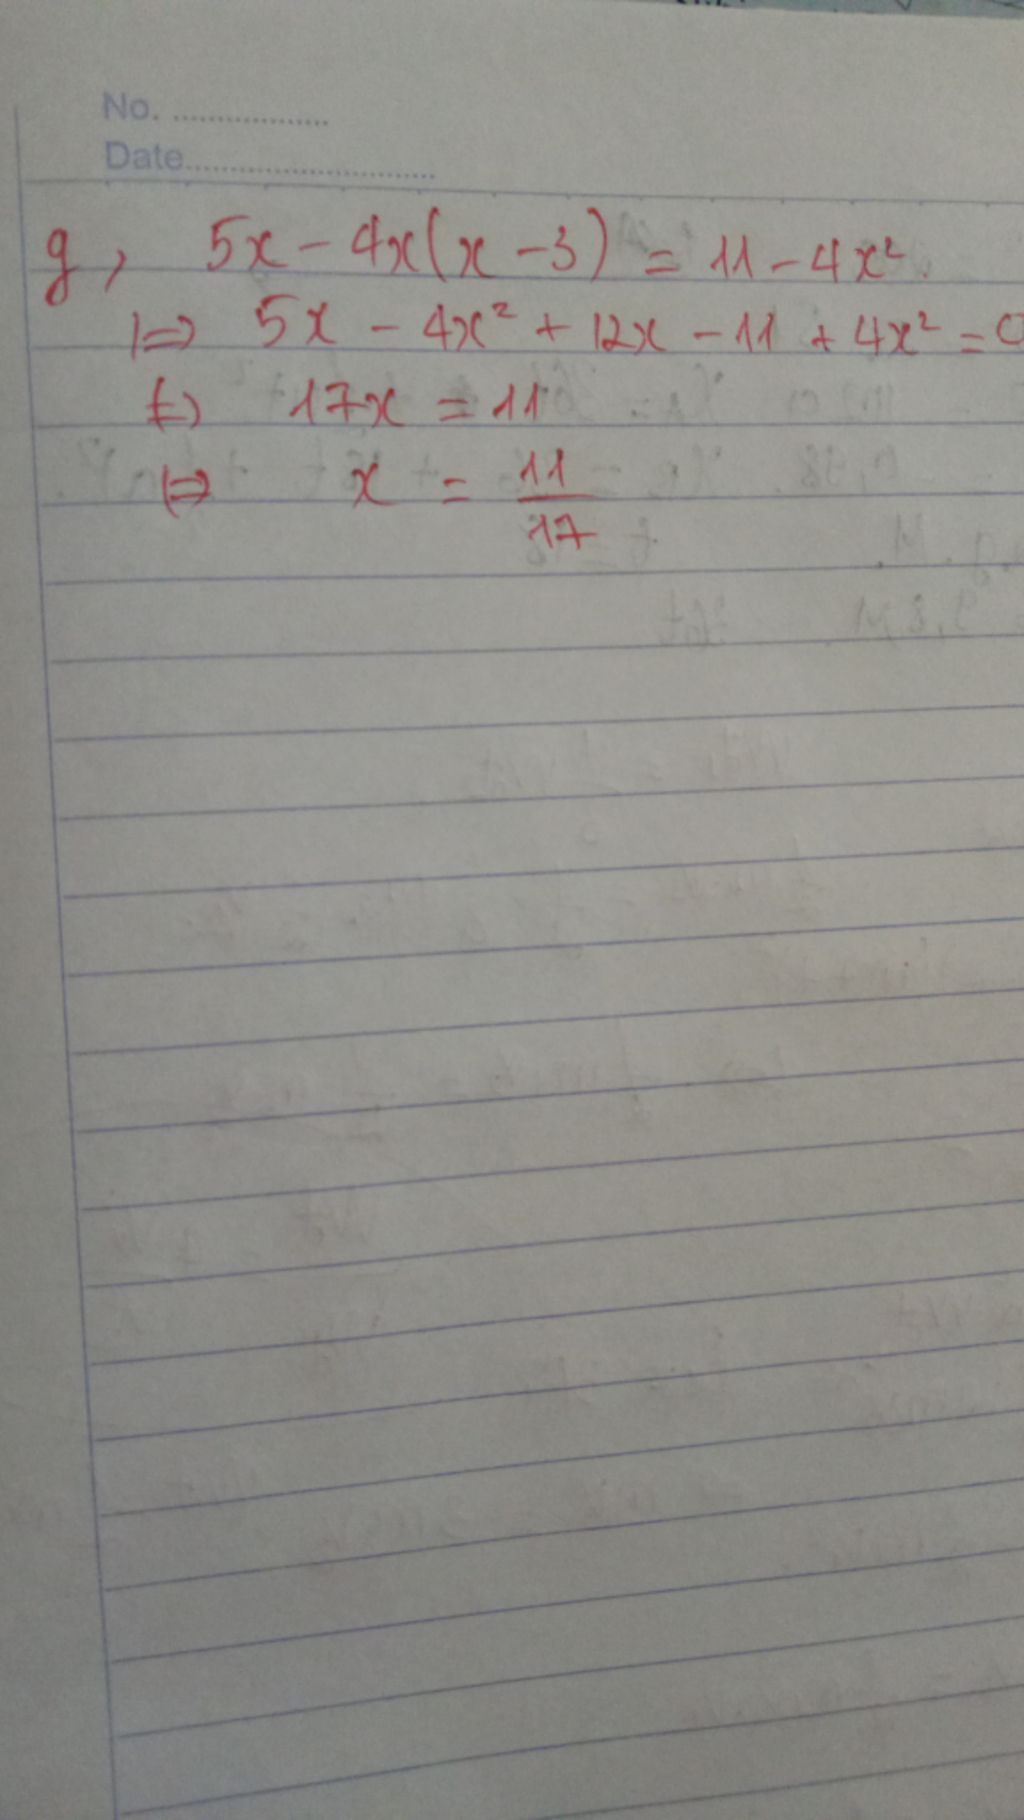 No. ................
Date..........................
g, 5x - 4x(x - 3) = 11 - 4x².
⇔ 5x - 4x² + 12x - 11 + 4x² = 0
⇔ 17x = 11
⇔ x = 11/17